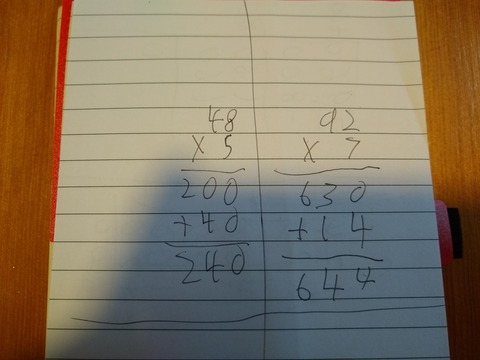 48
X 5
200
+40
240
92
X 7
630
+14
644